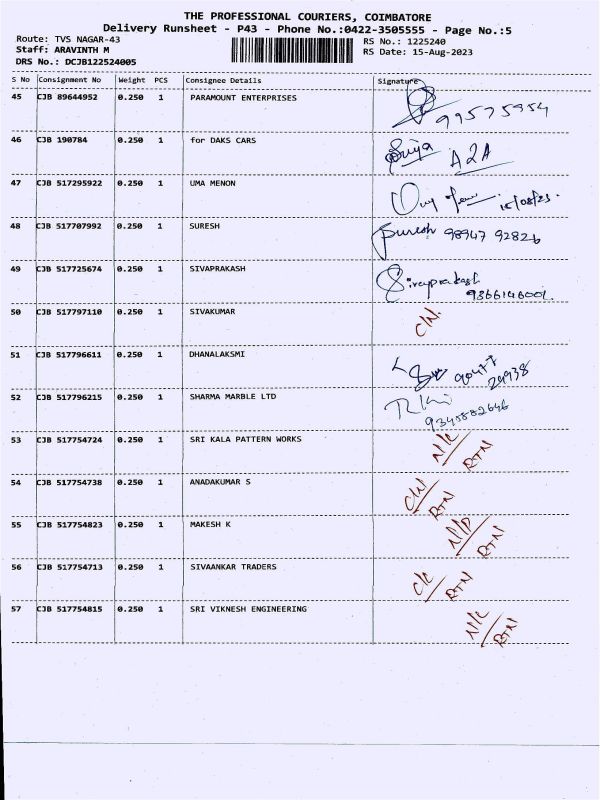 THE PROFESSIONAL COURIERS, COIMBATORE
Delivery Runsheet - P43 - Phone No.:0422-3505555 - Page No.:5
Route: TVS NAGAR-43 RS No.: 1225240
Staff: ARAVINTH M RS Date: 15-Aug-2023
DRS No.: DCJB122524005
S No Consignment No Weight PCS Consignee Details Signature
45 CJB 89644952 0.250 1 PARAMOUNT ENTERPRISES 99575954
46 CJB 190784 0.250 1 for DAKS CARS Priya A2A
47 CJB 517295922 0.250 1 UMA MENON 15/08/23.
48 CJB 517707992 0.250 1 SURESH Suresh 98947 92826
49 CJB 517725674 0.250 1 SIVAPRAKASH Sivaprakash
9366146001.
50 CJB 517797110 0.250 1 SIVAKUMAR C/N.
51 CJB 517796611 0.250 1 DHANALAKSMI
29938
52 CJB 517796215 0.250 1 SHARMA MARBLE LTD
9345582646
53 CJB 517754724 0.250 1 SRI KALA PATTERN WORKS N/C RTN
54 CJB 517754738 0.250 1 ANADAKUMAR S C/N RTN
55 CJB 517754823 0.250 1 MAKESH K N/P RTN
56 CJB 517754713 0.250 1 SIVAANKAR TRADERS C/C RTN
57 CJB 517754815 0.250 1 SRI VIKNESH ENGINEERING N/C RTN